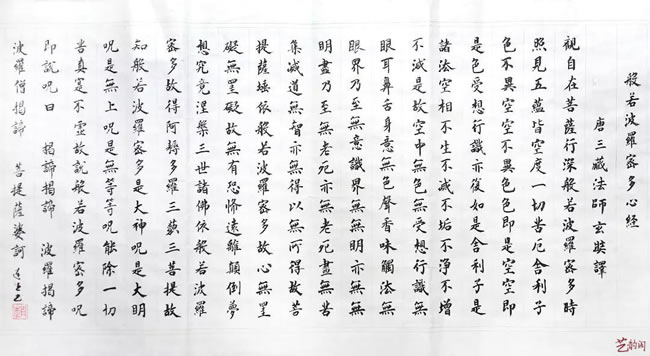 般若波羅密多心經
唐三藏法師玄奘譯
觀自在菩薩行深般若波羅密多時
照見五蘊皆空度一切苦厄舍利子
色不異空空不異色色即是空空即
是色受想行識亦復如是舍利子是
諸法空相不生不滅不垢不淨不增
不減是故空中無色無受想行識無
眼耳鼻舌身意無色聲香味觸法無
眼界乃至無意識界無無明亦無無
明盡乃至無老死亦無老死盡無苦
集滅道無智亦無得以無所得故菩
提薩埵依般若波羅密多故心無罣
礙無罣礙故無有恐怖遠離顛倒夢
想究竟涅槃三世諸佛依般若波羅
密多故得阿耨多羅三藐三菩提故
知般若波羅密多是大神呪是大明
呪是無上呪是無等等呪能除一切
苦真實不虛故說般若波羅密多呪
即説呪曰 揭諦揭諦 波羅揭諦
波羅僧揭諦 菩提薩婆訶
艺韵阁